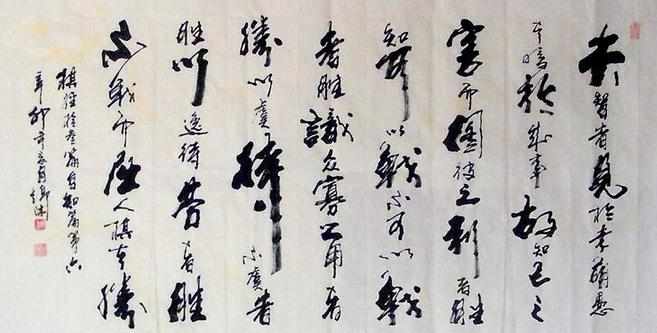 夫智者見於未萌愚
者暗於成事故知己之
害而圖彼之利者胜
知可以戰不可以戰
者胜識众寡之用者
勝以虞待不虞者
胜以逸待劳者胜
不戰而屈人棋者勝
棋經拾叁篇自知篇第六
辛卯年